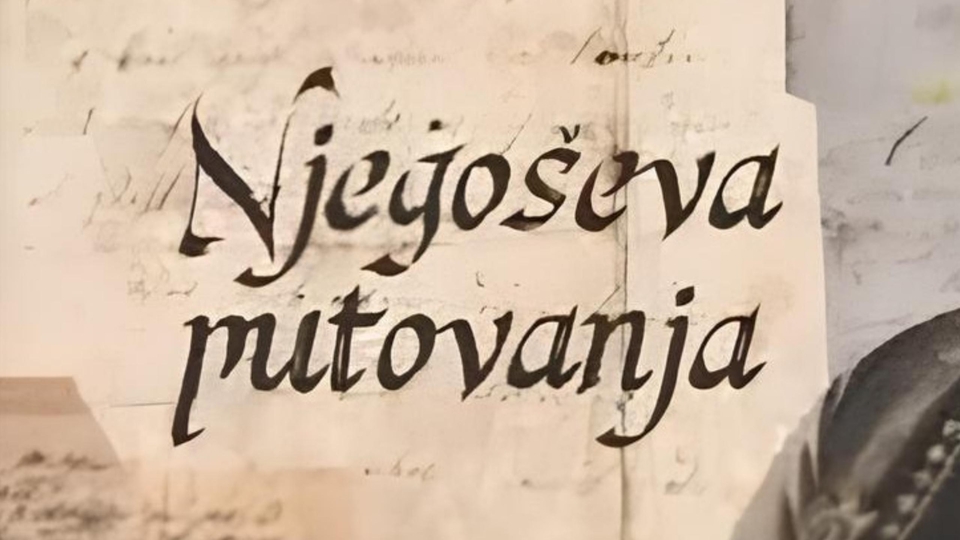 Njegoševa
putovanja